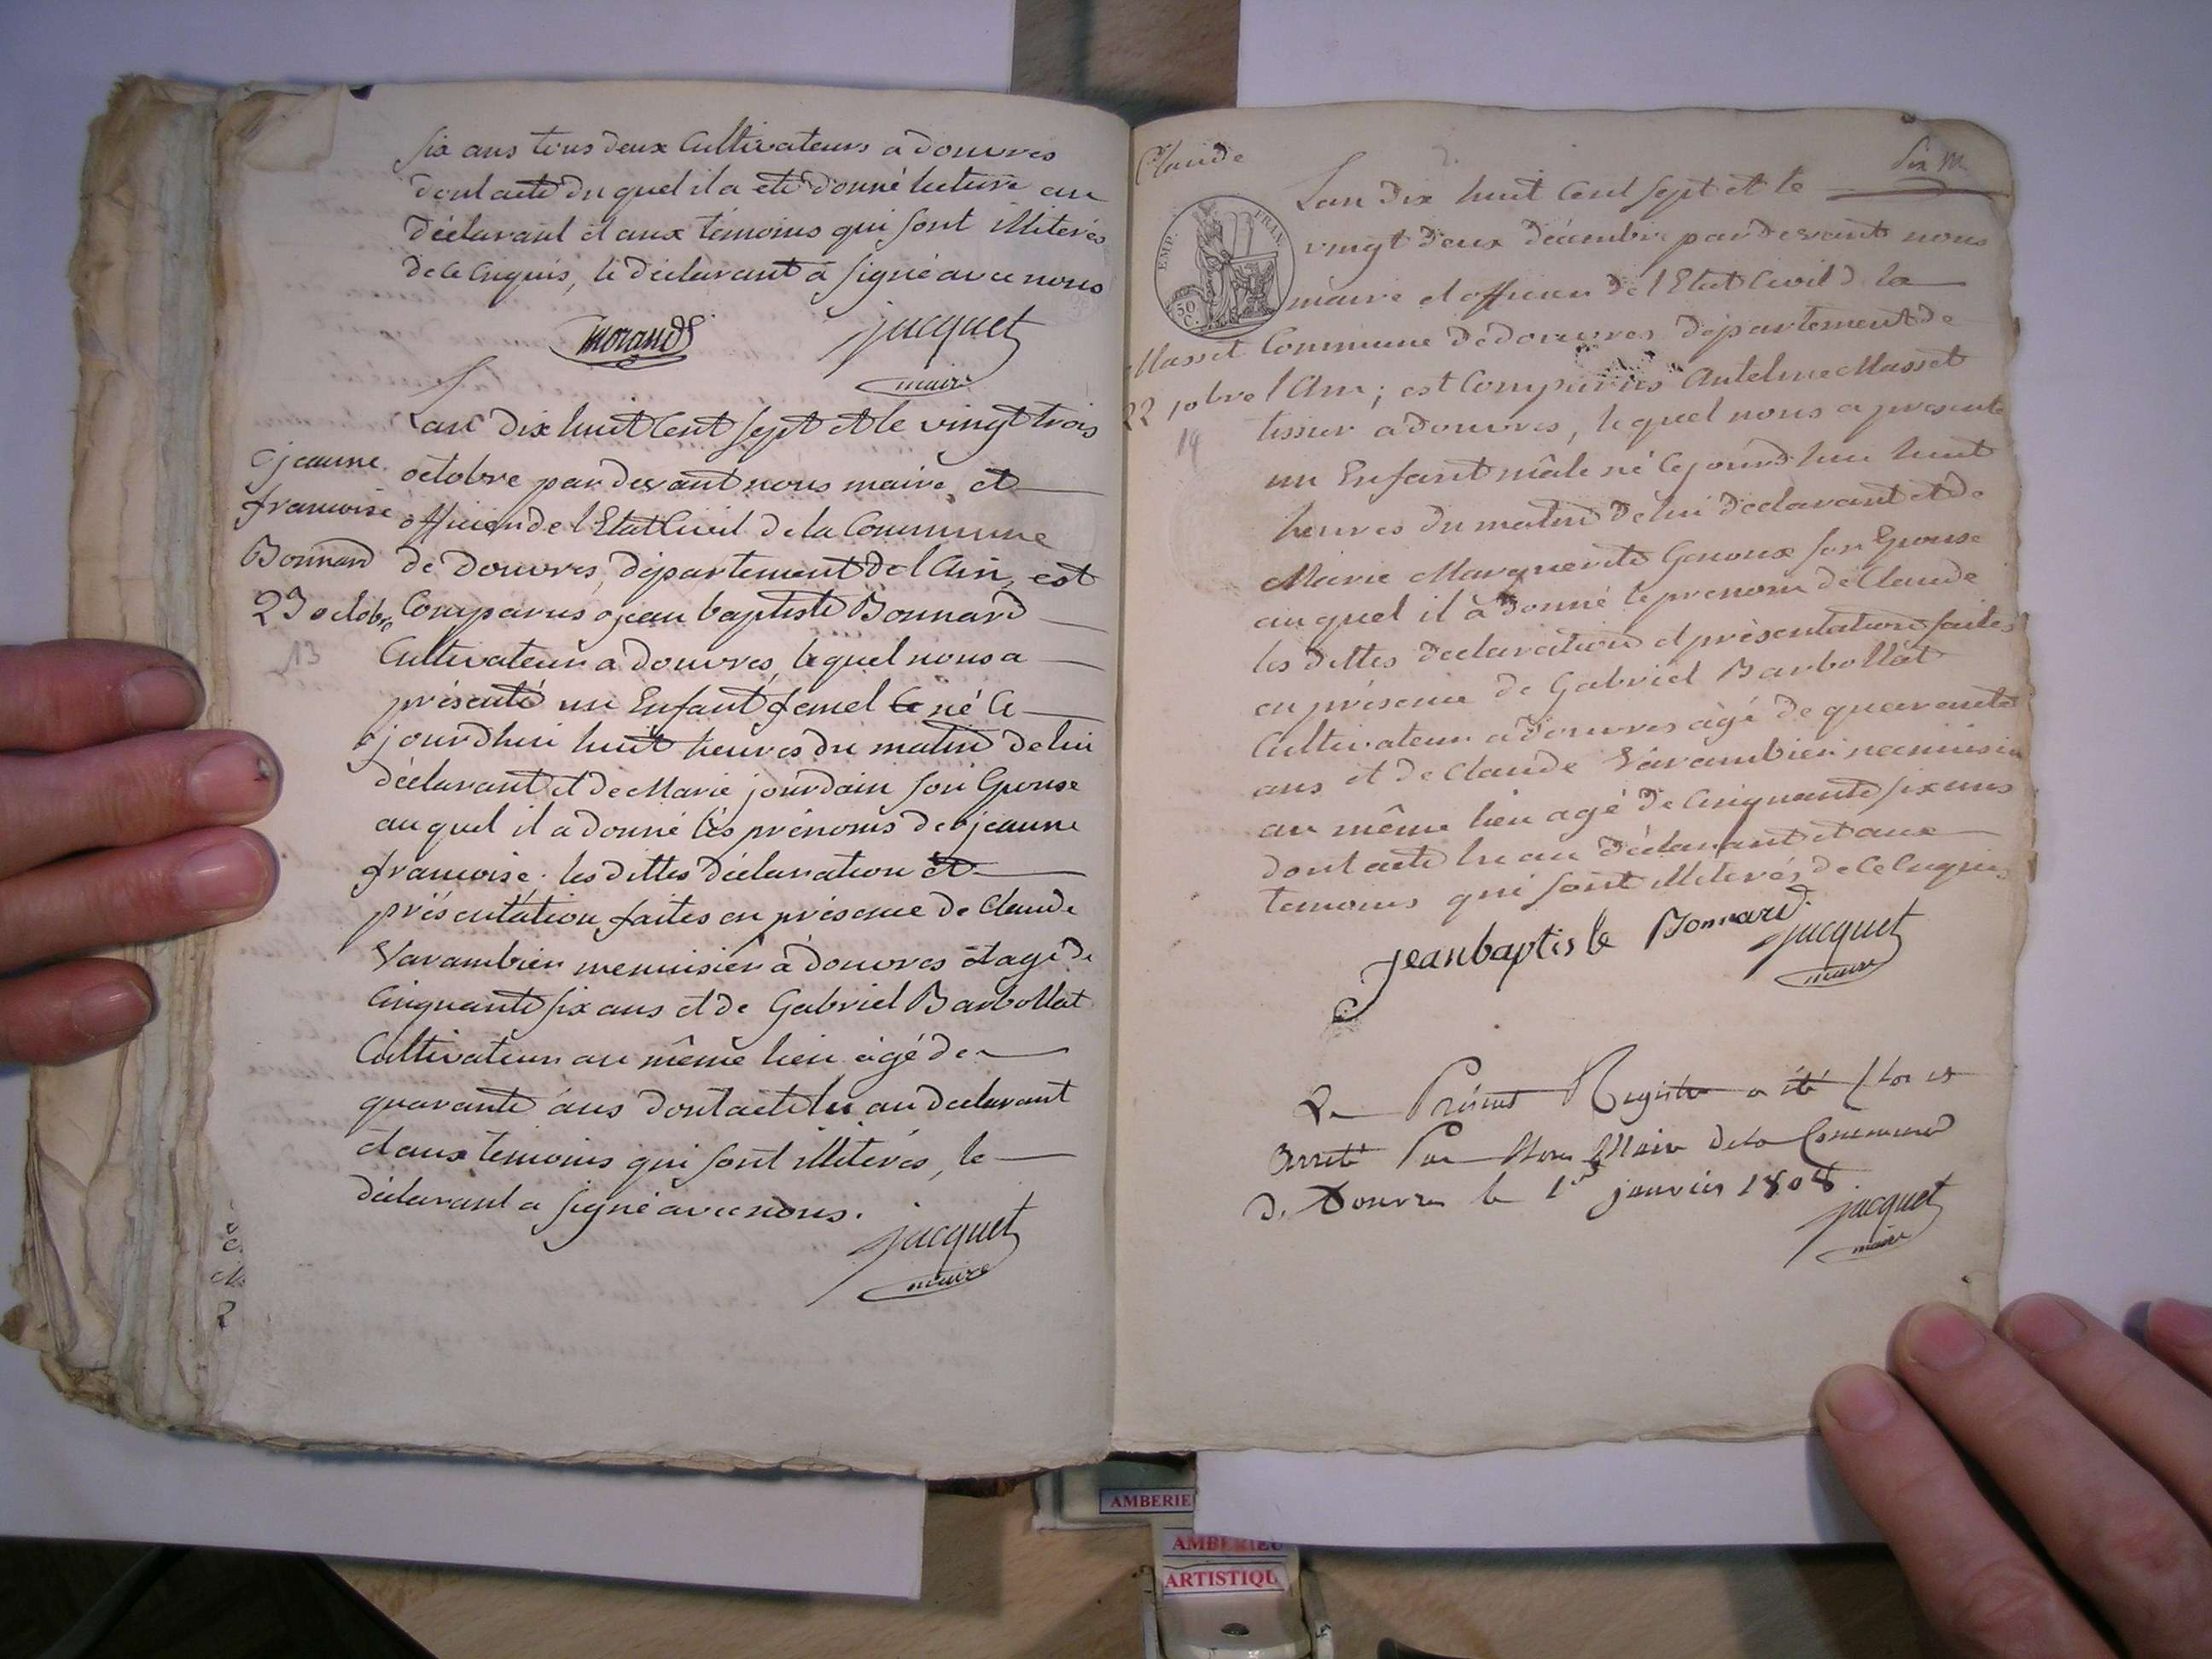 six ans tous deux Cultivateurs a douvres
dont acte du quel il a eté donné lecture au
déclarant et aux témoins qui sont illiterés
de ce Enquis, le déclarant a signé avec nous
morand jacquet
maire
Lan dix huit Cent sept et le vingt trois
octobre par devant nous maire et
officier de l'Etat Civil de la Commune
de Douvres, département de l'Ain, est
Comparus jean baptiste Bonnard
Cultivateur a douvres, lequel nous a
présenté un Enfant femel né Ce
jourdhui huit heures du matin de lui
déclarant et de Marie jourdain son Epouse
au quel il a donné les prénoms de jeanne
francoise. les dittes déclaration et
présentation faites en présence de Claude
Varambier menuisier a douvres et agé de
Cinquante six ans et de Gabriel Barbollat
Cultivateur au même lieu agé de
quarante ans dont acte lu au declarant
et aux temoins qui sont illiterés, le
déclarant a signé avec nous.
jacquet
maire
jeanne
francoise
Bonnard
23 octobre
13
Claude
Masset
22 10bre
14
EMP. FRAN.
50 C.
Lan dix huit Cent sept et le
vingt deux décembre par devant nous
maire et officier de l'Etat Civil de la
Commune de douvres département de
l'Ain; est Comparus Antelme Masset
tissier a douvres, lequel nous a presenté
un Enfant mâle né Ce jourdhui huit
heures du matin de lui déclarant et de
Marie Marguerite Genoux son Epouse
au quel il a donné le prenom de Claude
les dittes declaration et présentation faites
en présence de Gabriel Barbollat
Cultivateur a douvres agé de quarante
ans et de Claude Varambier menuisier
au même lieu agé de Cinquante six ans
dont acte lu au déclarant et aux
temoins qui sont illiterés de Ce Enquis
jean baptiste Bonnard jacquet
maire
Le Présent Registre a été Clos et
Arreté Par Nous Maire de la Commune
de Douvres le 1er janvier 1808
jacquet
maire
AMBERIE
AMBERIEU
ARTISTIQU